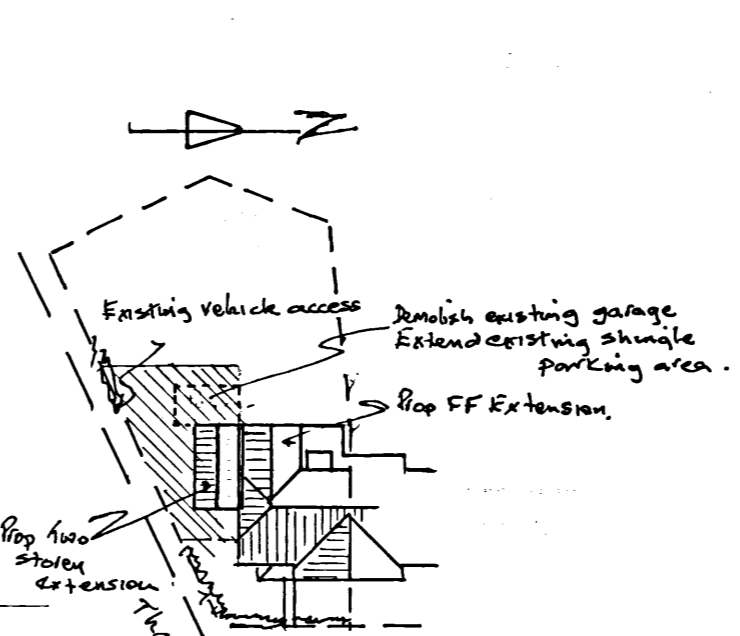 N
Existing vehicle access
Demolish existing garage
Extend existing shingle
parking area.
Prop FF Extension.
Prop two
storey
extension
Th